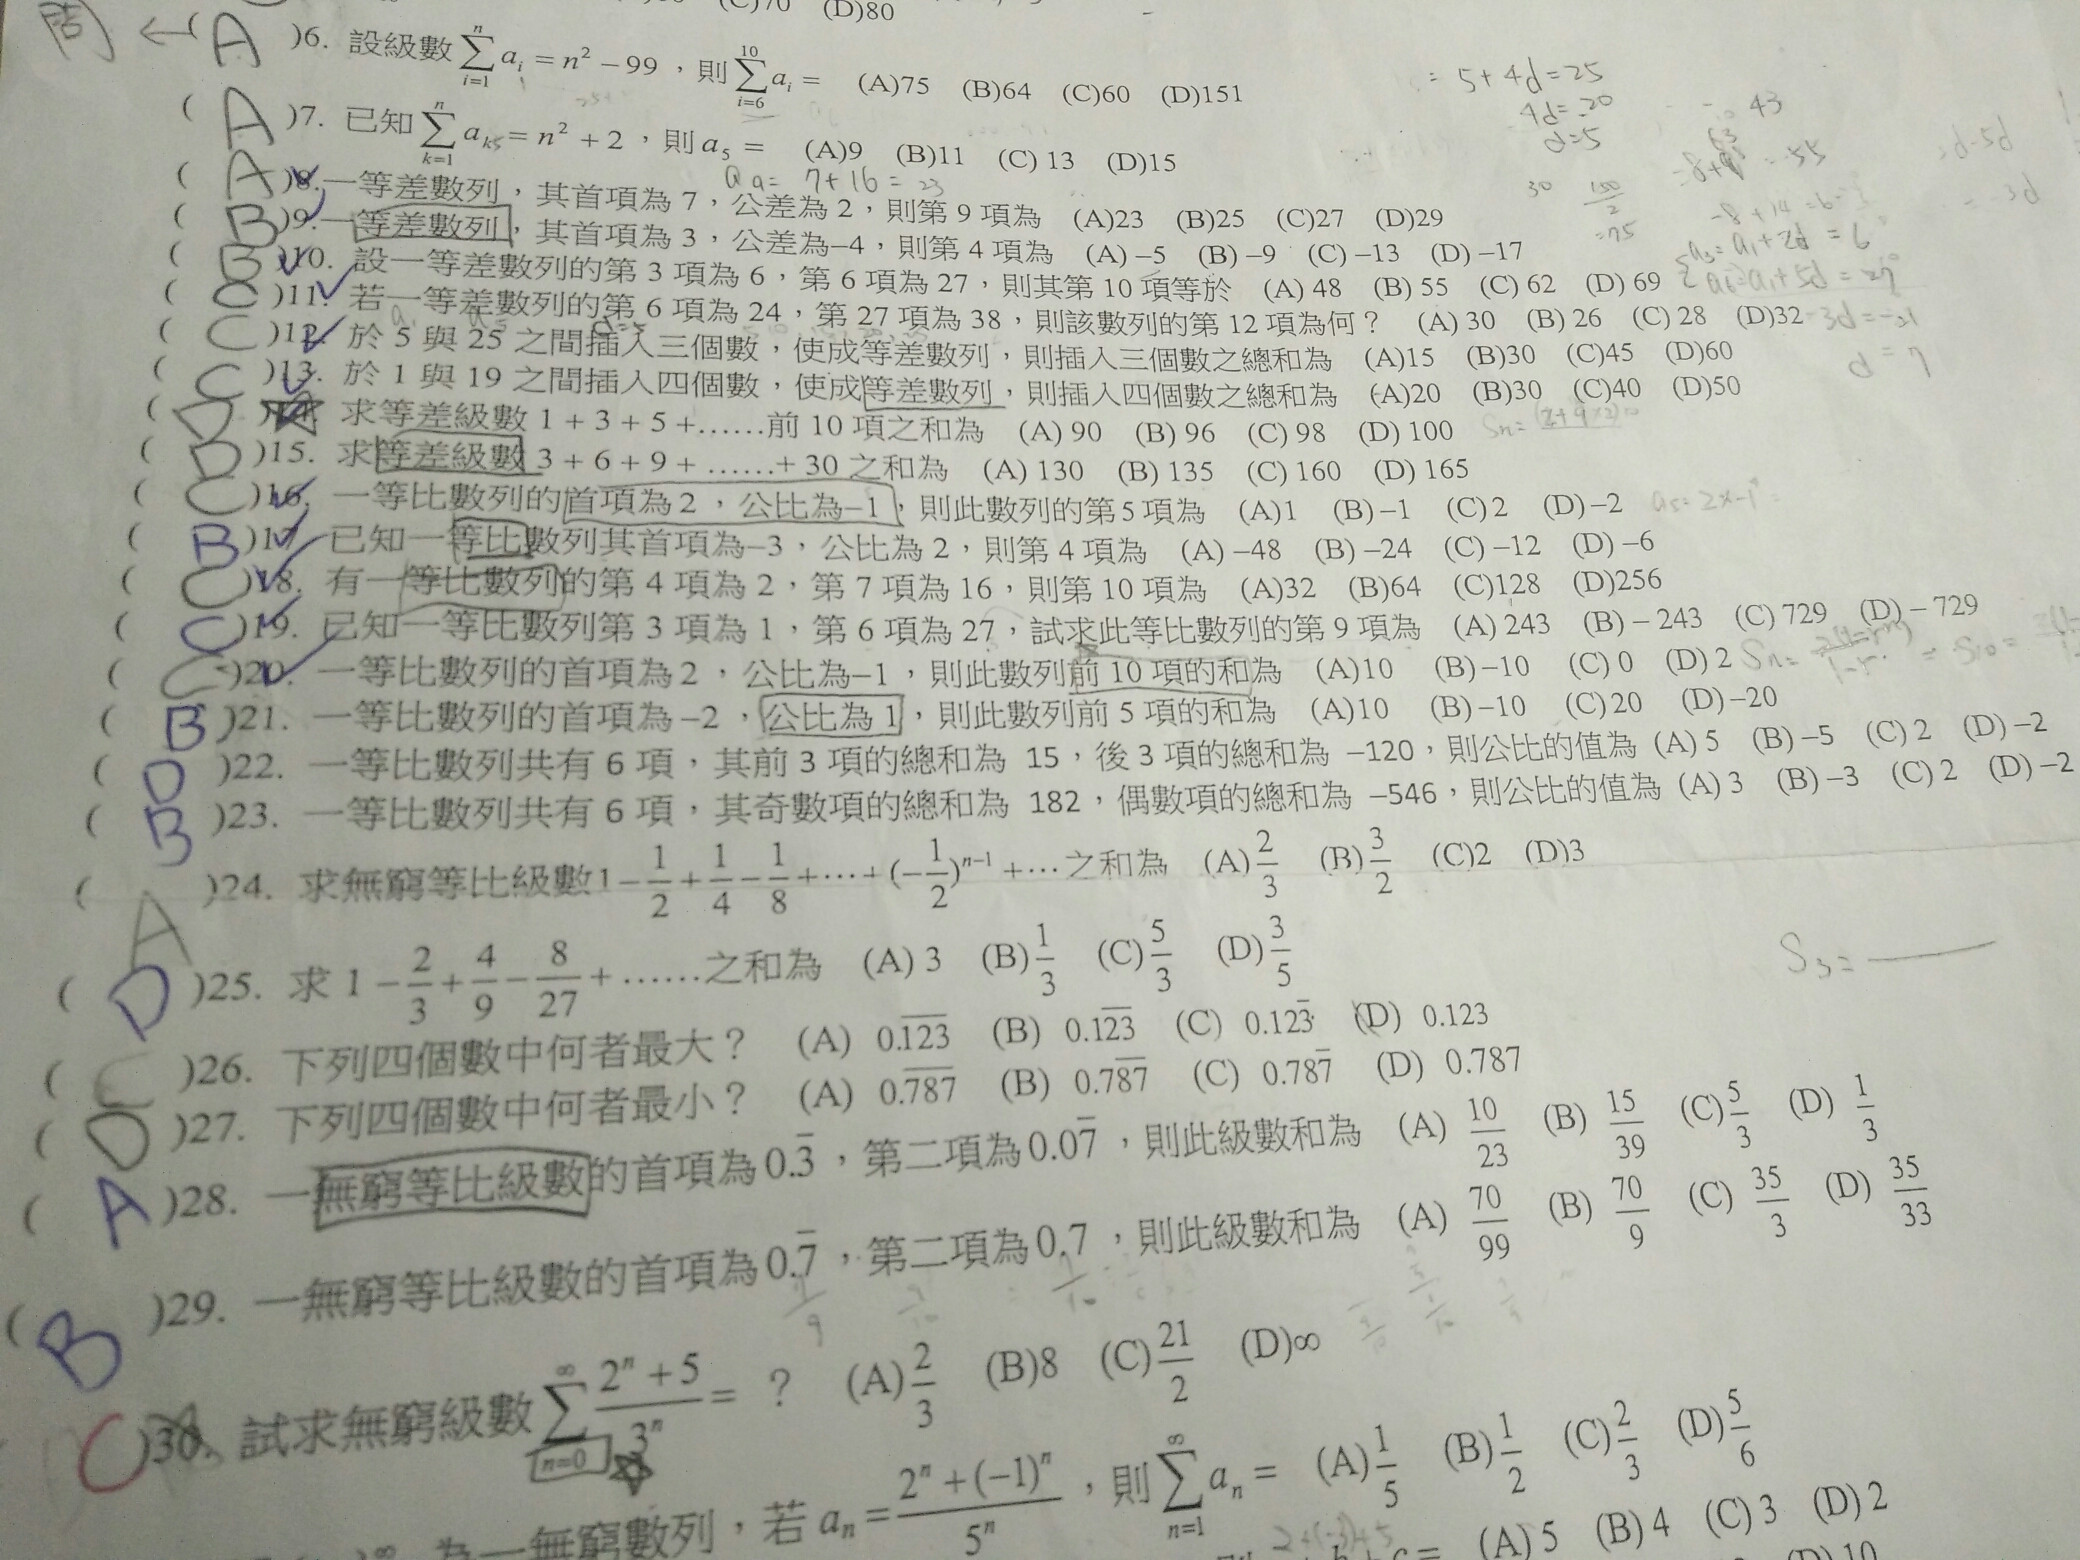 (C)70 (D)80
問 ← ( A )6. 設級數 \sum_{i=1}^{n} a_i = n^2 - 99，則 \sum_{i=6}^{10} a_i = (A)75 (B)64 (C)60 (D)151
= 5 + 4d = 25
4d = 20
d = 5
( A )7. 已知 \sum_{k=1}^{n} a_k = n^2 + 2，則 a_5 = (A)9 (B)11 (C) 13 (D)15
7 + 16 = 23
( A )8. 一等差數列，其首項為 7，公差為 2，則第 9 項為 (A)23 (B)25 (C)27 (D)29
( B )9. 一等差數列，其首項為 3，公差為–4，則第 4 項為 (A) –5 (B) –9 (C) –13 (D) –17
( B )10. 設一等差數列的第 3 項為 6，第 6 項為 27，則其第 10 項等於 (A) 48 (B) 55 (C) 62 (D) 69
a_3 = a_1 + 2d = 6
a_6 = a_1 + 5d = 27
-3d = -21
d = 7
( C )11. 若一等差數列的第 6 項為 24，第 27 項為 38，則該數列的第 12 項為何？ (A) 30 (B) 26 (C) 28 (D)32
( C )12. 於 5 與 25 之間插入三個數，使成等差數列，則插入三個數之總和為 (A)15 (B)30 (C)45 (D)60
( C )13. 於 1 與 19 之間插入四個數，使成等差數列，則插入四個數之總和為 (A)20 (B)30 (C)40 (D)50
( D )14. 求等差級數 1 + 3 + 5 +……前 10 項之和為 (A) 90 (B) 96 (C) 98 (D) 100
( D )15. 求等差級數 3 + 6 + 9 + ……+ 30 之和為 (A) 130 (B) 135 (C) 160 (D) 165
( C )16. 一等比數列的首項為 2，公比為–1，則此數列的第 5 項為 (A)1 (B) –1 (C) 2 (D) –2
( B )17. 已知一等比數列其首項為–3，公比為 2，則第 4 項為 (A) –48 (B) –24 (C) –12 (D) –6
( C )18. 有一等比數列的第 4 項為 2，第 7 項為 16，則第 10 項為 (A)32 (B)64 (C)128 (D)256
( C )19. 已知一等比數列第 3 項為 1，第 6 項為 27，試求此等比數列的第 9 項為 (A) 243 (B) – 243 (C) 729 (D) – 729
( C )20. 一等比數列的首項為 2，公比為–1，則此數列前 10 項的和為 (A)10 (B) –10 (C) 0 (D) 2
( B )21. 一等比數列的首項為 –2，公比為 1，則此數列前 5 項的和為 (A)10 (B) –10 (C) 20 (D) –20
( D )22. 一等比數列共有 6 項，其前 3 項的總和為 15，後 3 項的總和為 –120，則公比的值為 (A) 5 (B) –5 (C) 2 (D) –2
( B )23. 一等比數列共有 6 項，其奇數項的總和為 182，偶數項的總和為 –546，則公比的值為 (A) 3 (B) –3 (C) 2 (D) –2
( A )24. 求無窮等比級數 1 - \frac{1}{2} + \frac{1}{4} - \frac{1}{8} + ⋯ + (-\frac{1}{2})^{n-1} + ⋯ 之和為 (A) \frac{2}{3} (B) \frac{3}{2} (C)2 (D)3
S_3 =
( D )25. 求 1 - \frac{2}{3} + \frac{4}{9} - \frac{8}{27} + ……之和為 (A) 3 (B) \frac{1}{3} (C) \frac{5}{3} (D) \frac{3}{5}
( C )26. 下列四個數中何者最大？ (A) 0.\overline{123} (B) 0.1\overline{23} (C) 0.12\overline{3} (D) 0.123
( D )27. 下列四個數中何者最小？ (A) 0.\overline{787} (B) 0.7\overline{87} (C) 0.78\overline{7} (D) 0.787
( A )28. 一無窮等比級數的首項為 0.\overline{3}，第二項為 0.0\overline{7}，則此級數和為 (A) \frac{10}{23} (B) \frac{15}{39} (C) \frac{5}{3} (D) \frac{1}{3}
( B )29. 一無窮等比級數的首項為 0.\overline{7}，第二項為 0.7，則此級數和為 (A) \frac{70}{99} (B) \frac{70}{9} (C) \frac{35}{3} (D) \frac{35}{33}
C )30. 試求無窮級數 \sum_{n=0}^{∞} \frac{2^n + 5}{3^n} = ？ (A) \frac{2}{3} (B)8 (C) \frac{21}{2} (D)∞
為一無窮數列，若 a_n = \frac{2^n + (-1)^n}{5^n}，則 \sum_{n=1}^{∞} a_n = (A) \frac{1}{5} (B) \frac{1}{2} (C) \frac{2}{3} (D) \frac{5}{6}
(A) 5 (B) 4 (C) 3 (D) 2
(D) 10